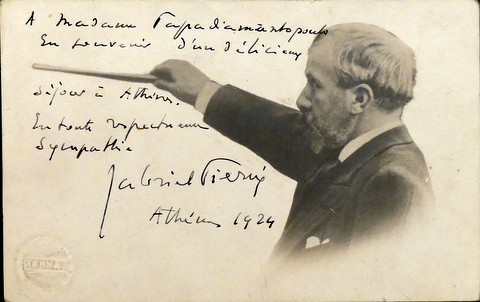 A Madame Papadiamantopoulo
En souvenir d'un délicieux
séjour à Athènes.
En toute respectueuse
Sympathie
Gabriel Pierné
Athènes 1924